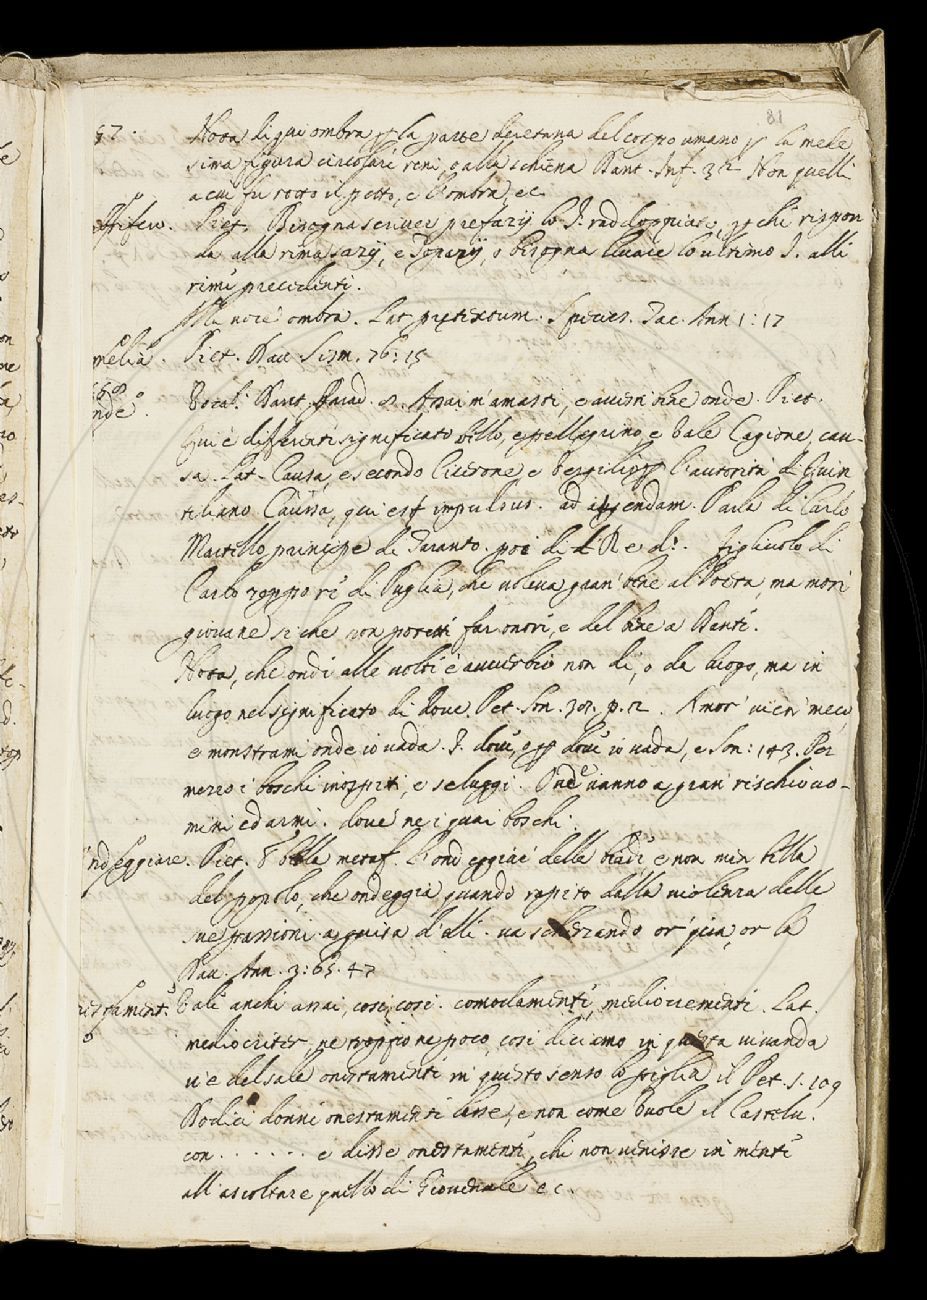 18.
57. Nota di qui ombra p la parte deretana del corpo umano p la mede
sima figura cioè reni, o alla schiena Dant. Inf. 32 Non quelli
a cui fu rotto il petto, e l'ombra, ec.
Piet. Bisogna scriver prefazij lo I. raddoppiato, p chè rispon
da alla rima sazij, e bisogna levare lo ultimo I. alle
rime precedenti.
Alla voce ombra. Lat. pretextum. Species. Tac. Ann 1:17
melia. Piet. Dav. Scism. 76:15
onde. Vocab. Dant. Parad. 8. Assai m'amasti, e avesti bene onde. Piet.
Qui è differente significato bello, e pellegrino, e vale Cagione, cau-
sa. Lat. Causa, e secondo Cicerone e Vergilio p l'autorità di Quin
tiliano Caussa, qui est impulsus. ad agendam. Parla di Carlo
Martello principe di Taranto. poi di Re d. figliuolo di
Carlo zoppo re di Puglia, che voleva gran bene al Poeta, ma morì
giovane sì che non poretti far onori, e del bene a Dante.
Nota, che onde alle volte è avverbio non di, o da luogo, ma in
luogo nel significato di dove. Pet. Son. p. 2. Amor vien meco
e monstrami onde io vada. I. dove, o p dove io vada, e Son: 143. Per
mezzo i boschi inospiti, e selvaggi. Onde vanno a gran rischio uo-
mini ed armi. dove ne i quai boschi.
ondeggiare. Piet. È bella metaf. l'ondeggiare delle biade e non men bella
del popolo, che ondeggia quando rapito dalla violenza delle
sue passioni a guisa d'elle va scherzando or qua, or là
Dav. Ann. 3:65.47
nestament. Vale anche assai, così, così. comodamente, mediocremente. Lat.
mediocriter, ne troppo ne poco, così diciamo in questa vivanda
v'è del sale onestamente in questo senso lo piglia il Pet. S. 109
Dodici donne onestamente lasse, e non come vuole il Castelv.
con . . . . . . . e disse onestamente, che non venisse in mente
all ascoltare quello di Giovenale ec.